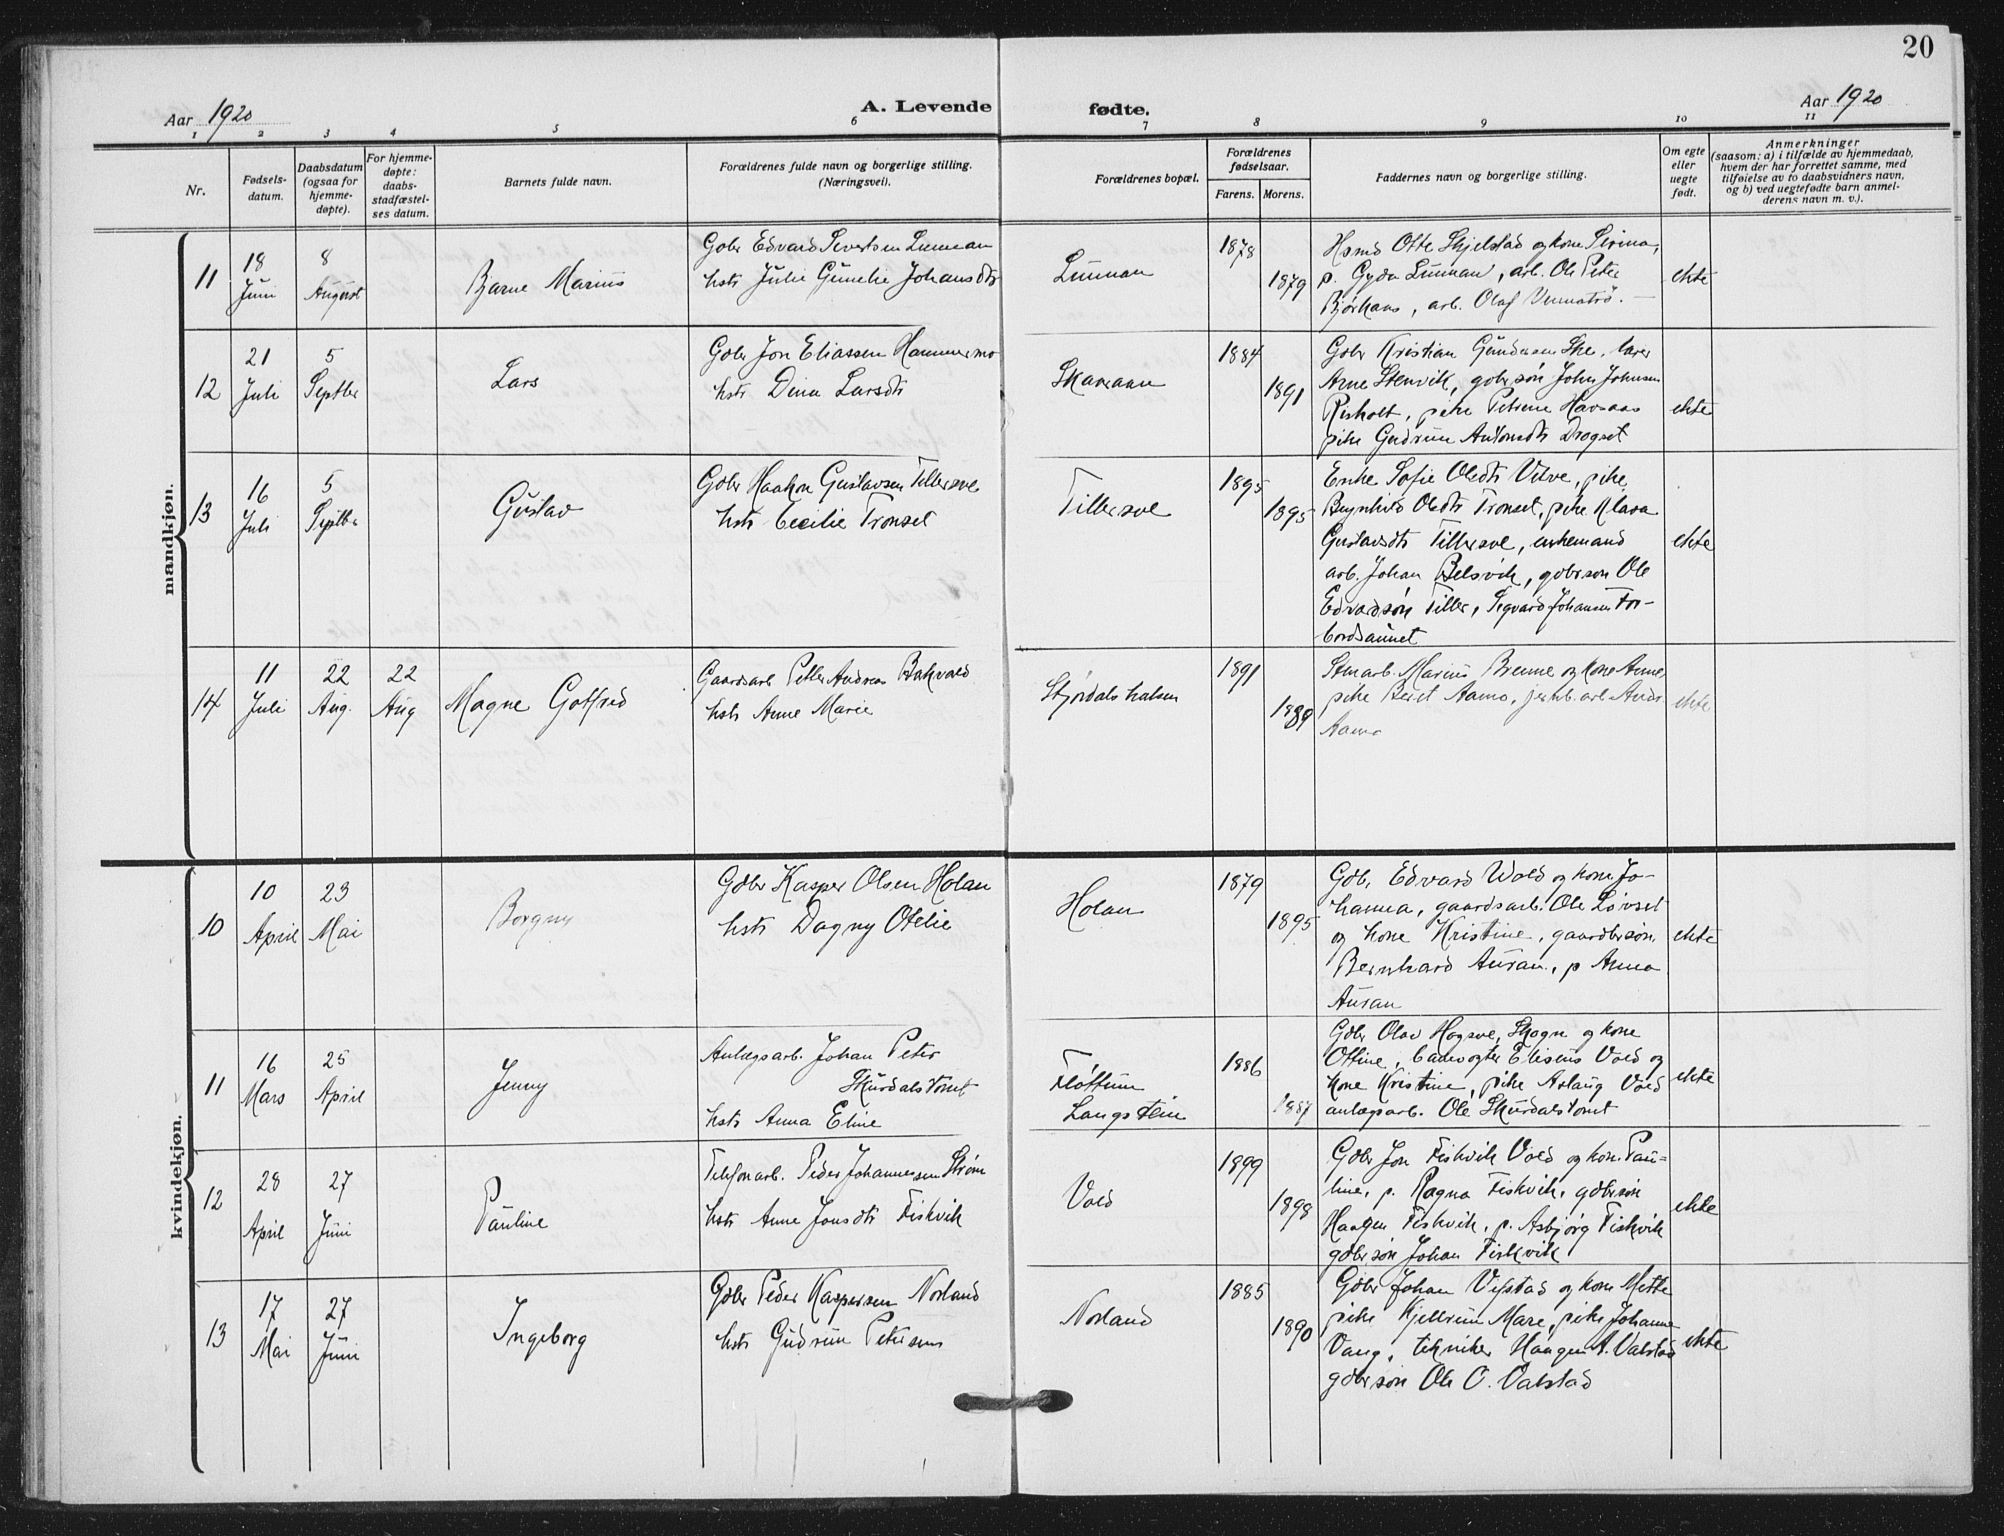 20
Aar 1920
A. Levende fødte.
Aar 1920
1 2 3 4 5 6 7 8 9 10 11
Nr.
Fødsels-
datum.
Daabsdatum
(ogsaa for
hjemme-
døpte).
For hjemme-
døpte:
daabs-
stadfæstel-
ses datum.
Barnets fulde navn.
Forældrenes fulde navn og borgerlige stilling.
(Næringsvei).
Forældrenes bopæl.
Forældrenes
fødselsaar.
Farens. Morens.
Faddernes navn og borgerlige stilling.
Om egte
eller
uegte
født.
Anmerkninger
(saasom: a) i tilfælde av hjemmedaab,
hvem der har forrettet samme, med
tilføielse av to daabsvidners navn,
og b) ved uegtefødte barn anmel-
derens navn m. v.).
mandkjøn.
11
18
Juni
8
August
Bjarne Marius
Gbr Edvard Sivertsen Lunnan
hstr Julie Gunelie Johansdtr
Lunnan
1878
1879
Hsmd Otte Skjelstad og kone Sirina,
p. Gyda Lunnan, arb. Ole Peter
Bjørkaas, arb. Olaf
ekte
12
21
Juli
5
Septbr
Lars
Gbr Jon Eliassen Hammermo
hstr Dina Larsdtr
Skavaan
1884
1891
Gbr Kristian Gundersen Ske, lærer
Arne Stenvik, gbrsøn John Johnsen
Risholt, pike Petrine Havsaas
pike Gudrun Antonsdtr Drogset
ekte
13
16
Juli
5
Septbr
Gustav
Gbr Haakon Gustavsen Tillersve
hstr Cecilie Tronset
Tillersve
1895
1895
Enke Sofie Olsdtr Vilve, pike
Brynhild Olsdtr Tronset, pike Klara
Gustavsdtr Tillersve, enkemand
arb. Johan Belsvik, gbrson Ole
Edvardsøn Tiller, Sigvard Johansen For-
bordsaunet
ekte
14
11
Juli
22
Aug.
22
Aug
Magne Gotfred
Gaardsarb Petter Andreas Bakvold
hstr Anne Marie
Stjørdalshalsen
1891
1889
Stenarb. Marius Brenne og kone Anne
pike Beret Aamo, jernb. arb Anders
Aamo
ekte
kvindekjøn.
10
10
April
23
Mai
Borgny
Gbr Kasper Olsen Holan
hstr Dagny Otelie
Holan
1879
1895
Gbr. Edvard Wold og kone Jo-
hanna, gaardsarb. Ole Løvset
og kone Kristine, gaardbrsøn,
Bernhard Auran, p Anna
Auran
ekte
11
16
Mars
25
April
Jenny
Anlægsarb. Johan Peter
Skurdalstomt
hstr Anna Eline
Fløttum
Langstein
1886
1887
Gbr Olav Hogsve, Skogn og kone
Ottine, banevogter Eliseus Vold og
kone Kristine, pike Aslaug Vold
anlægsarb. Ole Skurdalstomt
ekte
12
28
April
27
Juni
Pauline
Telefonarb. Peder Johannessen Strøm
hstr Anne Jonsdtr Fiskvik
Vold
1899
1898
Gbr Jon Fiskvik Vold og kone Pau-
line, p. Ragna Fiskvik, gbrsøn
Haagen Fiskvik, p. Asbjørg Fiskvik
gbrsøn Johan Fiskvik
ekte
13
17
Mai
27
Juni
Ingeborg
Gbr Peder Kaspersen Norland
hstr Gudrun Petersens
Norland
1885
1890
Gbr Johan Vifstad og kone Mette
pike Kjellrun Mære, pike Johanne
Vang, tekniker Haagen A. Valstad
gbrsøn Ole O. Valstad
ekte